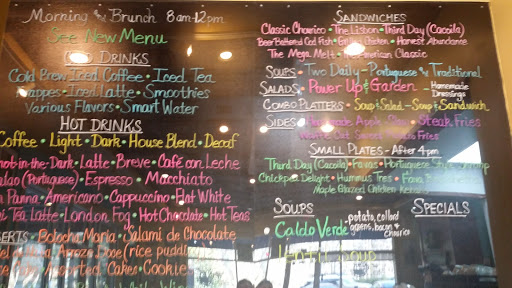 Morning & Brunch 8am-12pm
See New Menu
DRINKS
Cold Brew Iced Coffee • Iced Tea
Frappes • Iced Latte • Smoothies
Various Flavors • Smart Water
HOT DRINKS
Coffee • Light • Dark • House Blend • Decaf
Shot-in-the-Dark • Latte • Breve • Café con Leche
Galao (Portuguese) • Espresso • Macchiato
Panna • Americano • Cappuccino • Flat White
Chai Tea Latte • London Fog • Hot Chocolate • Hot Teas
DESSERTS • Bolacha Maria • Salami de Chocolate
Arroz Doce (rice pudding)
Assorted Cakes • Cookie
SANDWICHES
Classic Chourico • The Lisbon • Third Day (Cacoila)
Beer Battered Cod Fish • Grilled Chicken • Harvest Abundance
The Mega Melt • The American Classic
SOUPS • Two Daily - Portuguese & Traditional
SALADS • Power Up & Garden - Homemade
Dressings
COMBO PLATTERS • Soup & Salad - Soup & Sandwich
SIDES • Homemade Apple Slaw • Steak Fries
Fries
SMALL PLATES - After 4pm
Third Day (Cacoila) • Favas • Portuguese Style Shrimp
Chickpea Delight • Hummus Trees • Fava
Maple Glazed Chicken Kebabs
SOUPS
SPECIALS
Caldo Verde - potato, collard
greens, bacon &
chourico